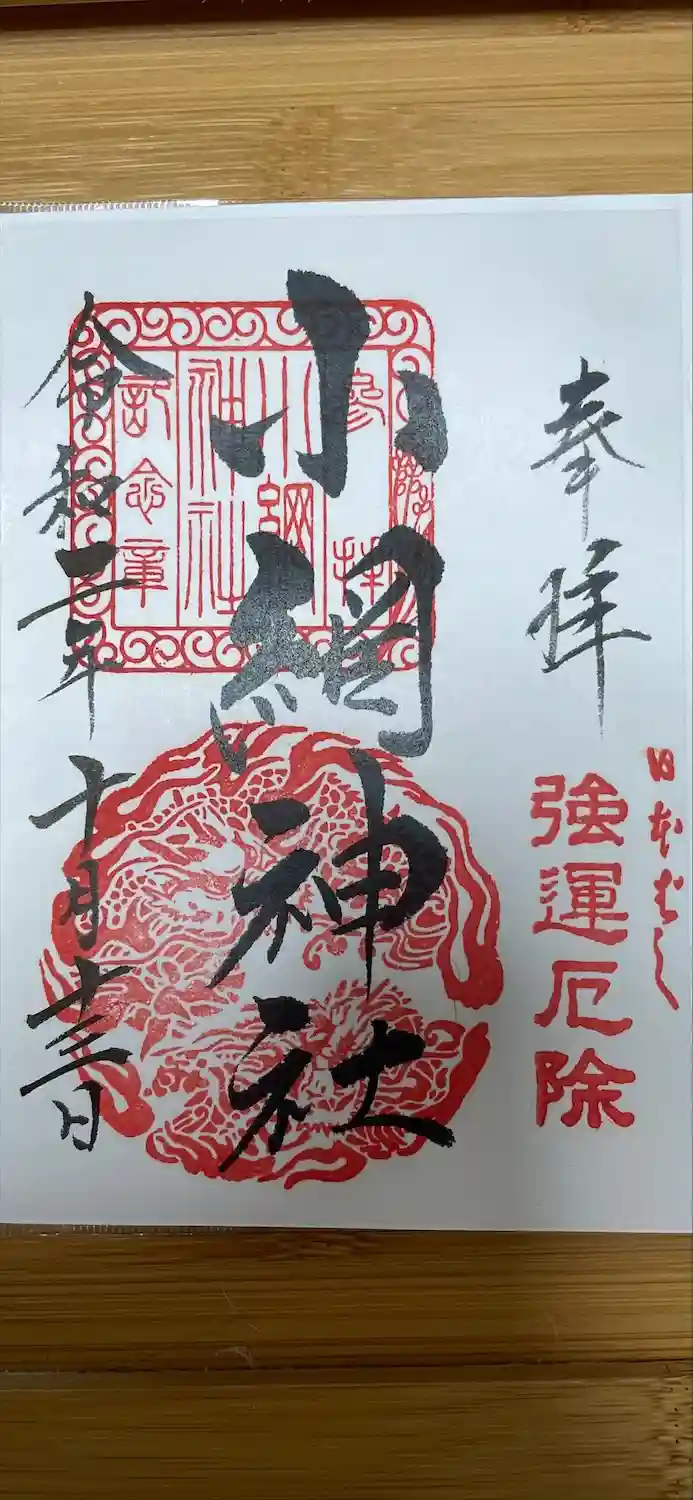 日本ばし
強運厄除
奉拝
小網神社
参拝
小網
神社
記念章
令和二年十月十三日